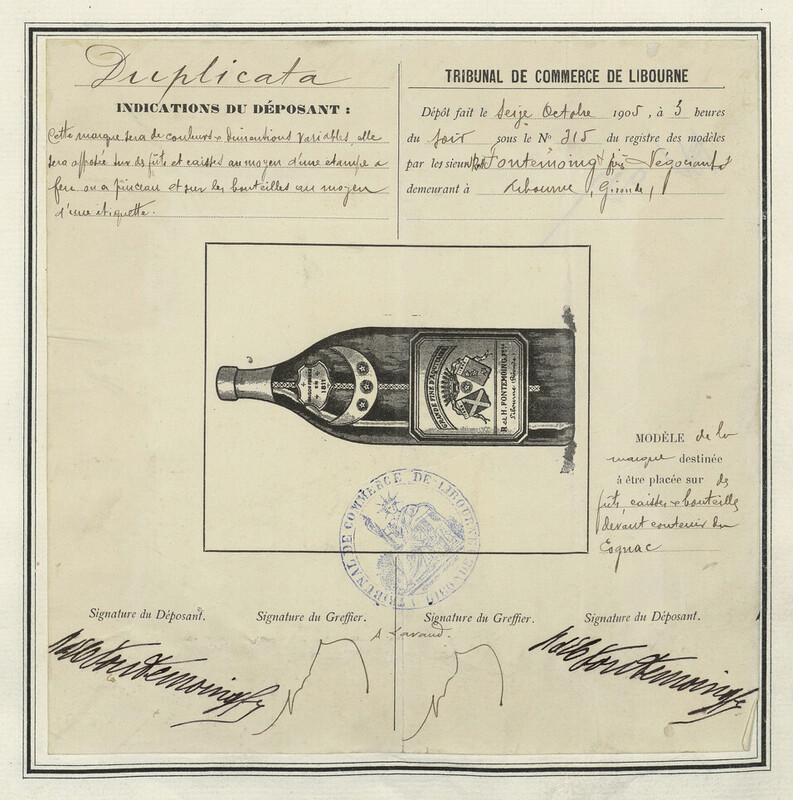 Duplicata
INDICATIONS DU DÉPOSANT :
Cette marque sera de couleurs & dimentions variables, elle
sera apposée sur des fûts et caisses au moyen d'une estampe a
feu ou a pinceau et sur les bouteilles au moyen
d'une étiquette.
TRIBUNAL DE COMMERCE DE LIBOURNE
Dépôt fait le Seize Octobre 1905, à 3 heures
du soir sous le No 215 du registre des modèles
par les sieurs R & H Fontemoing frs Négociants
demeurant à Libourne, Gironde,
1811
GRANDE FINE
R et H. FONTEMOING, Frs
Libourne (Gironde)
MODÈLE de la
marque destinée
à être placée sur des
fûts, caisses & bouteilles
devant contenir du
Cognac
TRIBUNAL DE COMMERCE DE LIBOURNE
GIRONDE
Signature du Déposant.
Signature du Greffier.
Signature du Greffier.
Signature du Déposant.
Lavaud.
R & H Fontemoing frs
R & H Fontemoing frs